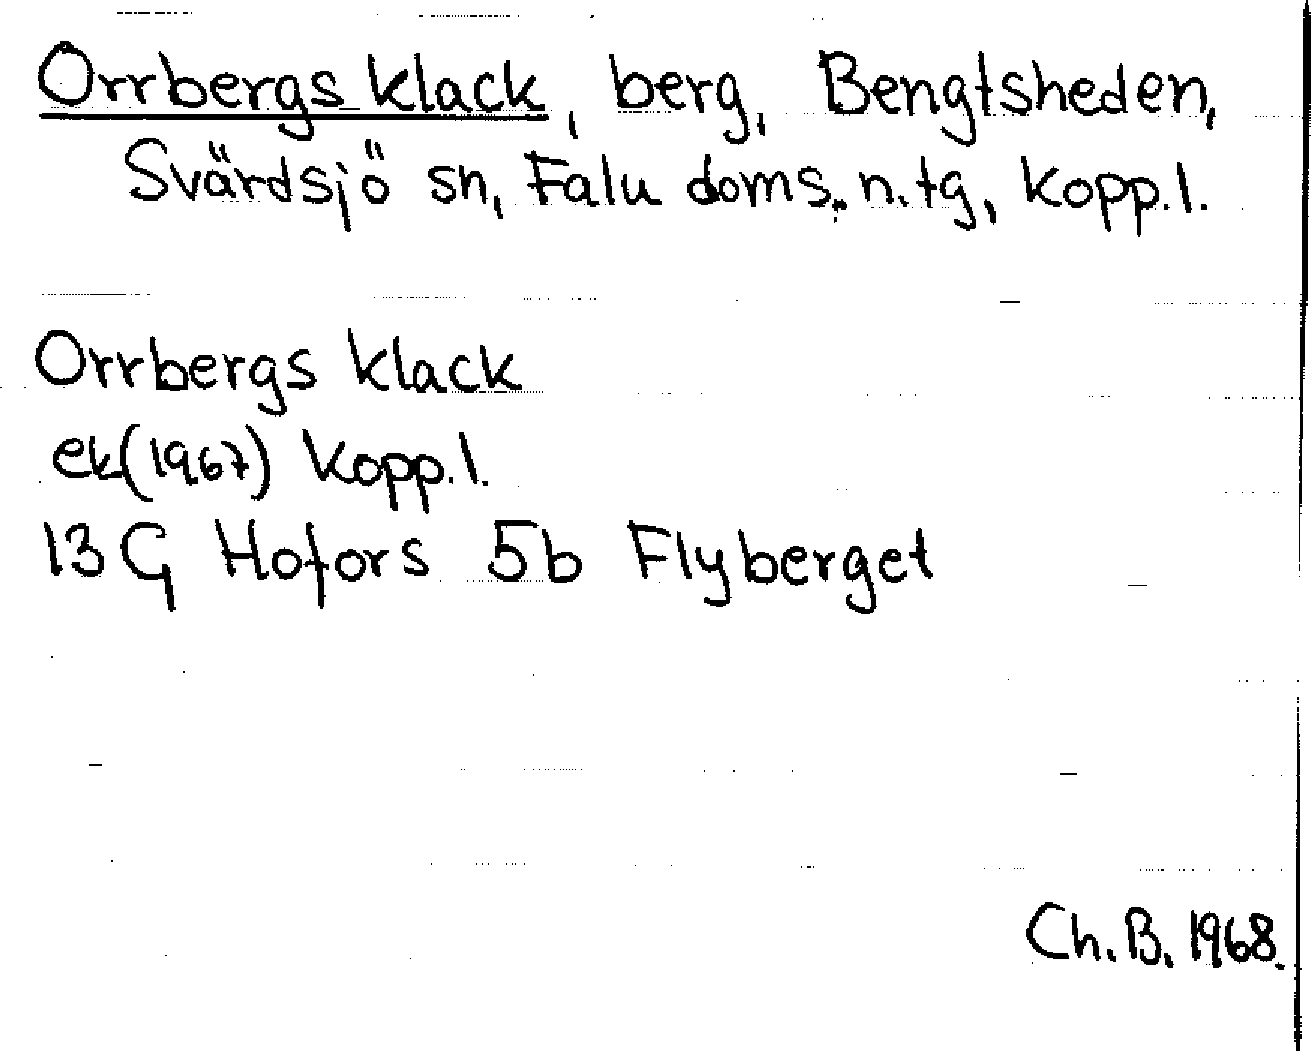 Orrbergs klack, berg, Bengtsheden,
Svärdsjö sn, Falu doms. n. tg, Kopp. l.
Orrbergs klack
ek(1967) Kopp. l.
13 G Hofors 5b Flyberget
Ch. B. 1968.